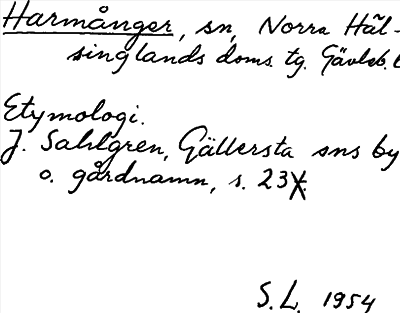 Harmånger, sn, Norra Häl-
singlands doms. tg. Gävleb. l
Etymologi.
J. Sahlgren, Gällersta sns by
o. gårdnamn, s. 23
S.L. 1954